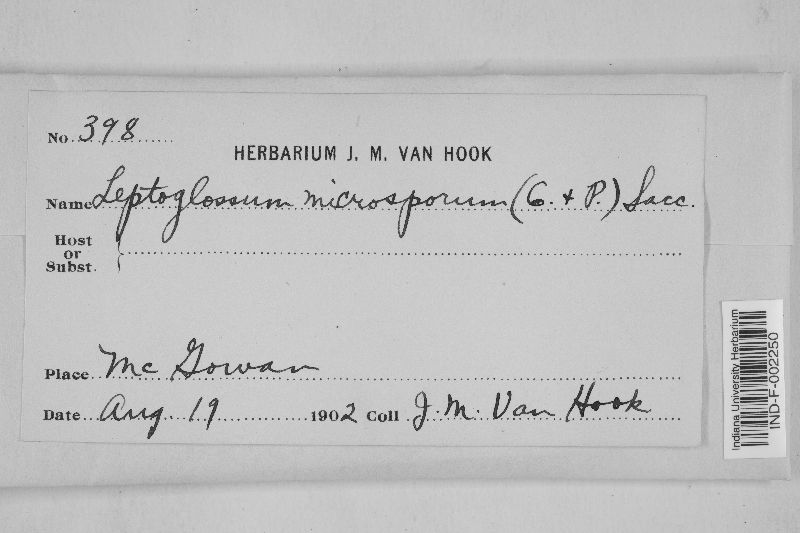 No. 398
HERBARIUM J. M. VAN HOOK
Name Leptoglossum microsporum (C. & P.) Sacc.
Host
or
Subst.
Place Mc Gowan
Date Aug. 19 1902 Coll J. M. Van Hook
Indiana University Herbarium
IND-F-002250